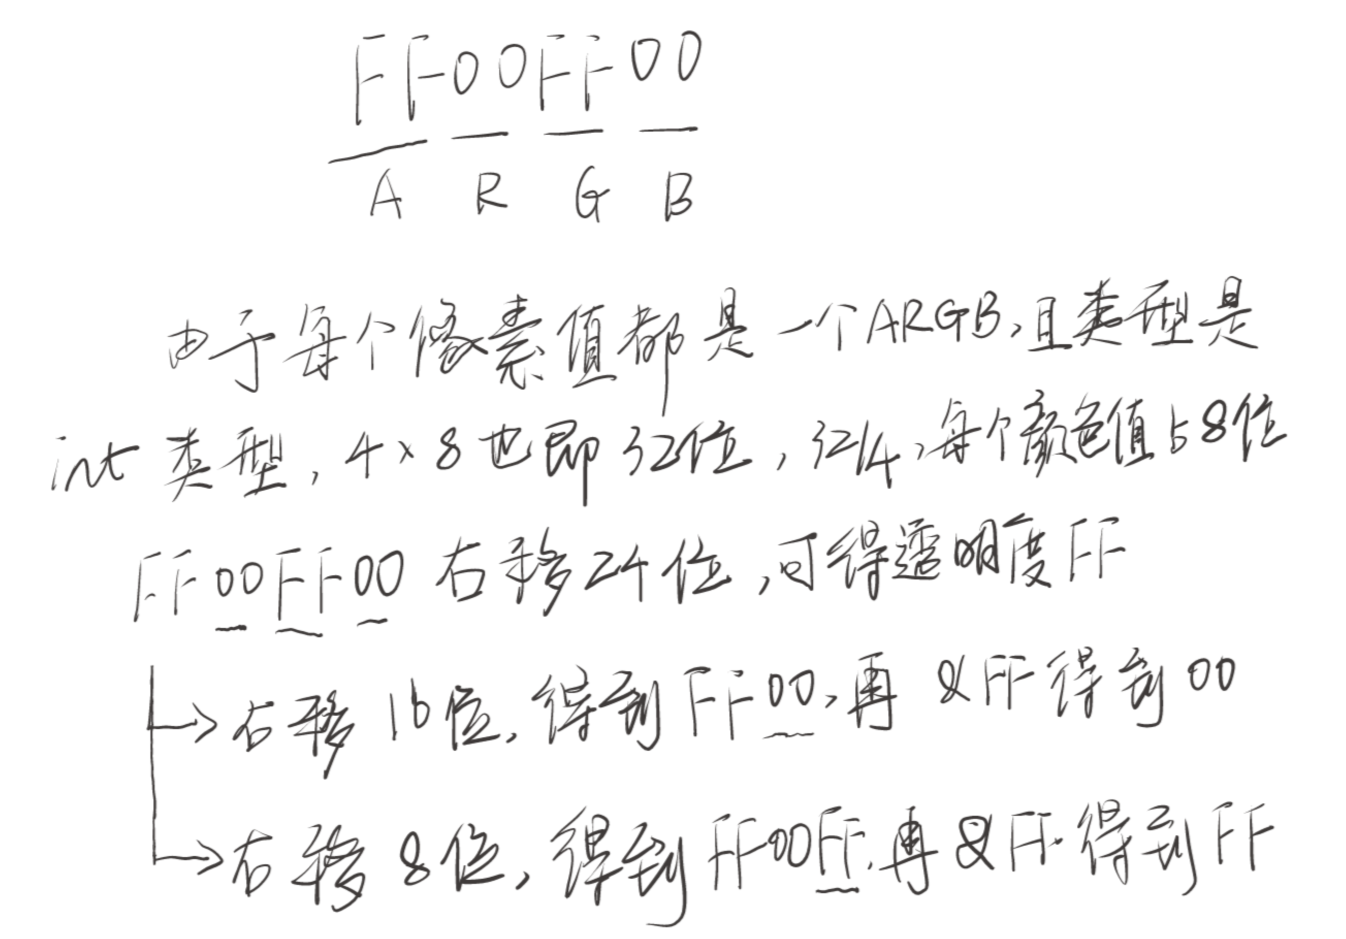 FF00FF00
A R G B
由于每个像素值都是一个ARGB,且类型是
int类型, 4×8也即32位, 32/4, 每个颜色值占8位
FF00FF00 右移24位, 可得透明度FF
→右移16位, 得到FF00, 再 &FF得到00
→右移8位, 得到FF00FF, 再&FF得到FF